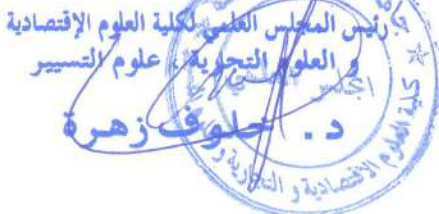 رئيس المجلس العلمي لكلية العلوم الإقتصادية
و العلوم التجارية ، علوم التسيير
د . خلوف زهرة
المجلس
كلية العلوم الاقتصادية و التجارية و